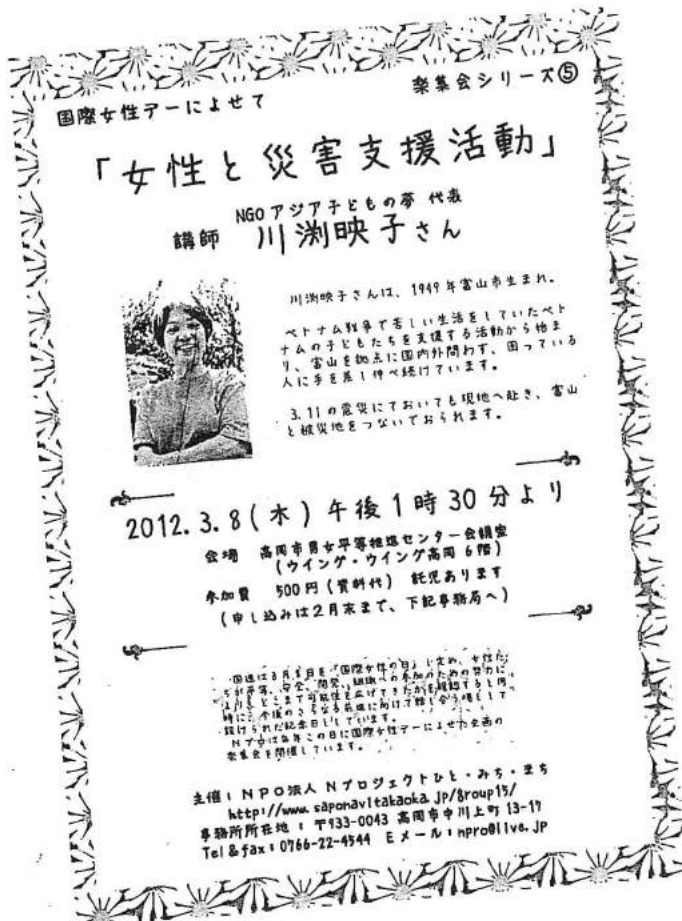 国際女性デーによせて
楽集会シリーズ⑤
「女性と災害支援活動」
NGOアジア子どもの夢 代表
講師 川渕映子さん
川渕映子さんは、1949年富山市生まれ。
ベトナム戦争で苦しい生活をしていたベト
ナムの子どもたちを支援する活動から始ま
り、富山を拠点に国内外問わず、困っている
人に手を差し伸べ続けています。
3.11の震災にておいても現地へ赴き、富山
と被災地をつないでおられます。
2012.3.8(木)午後1時30分より
会場 高岡市男女平等推進センター会議室
(ウイング・ウイング高岡6階)
参加費 500円(資料代) 託児あります
(申し込みは2月末まで、下記事務局へ)
国連は3月8日を「国際女性の日」と定め、女性た
ちが平等、安全、開発、組織への参加のための努力に
よりどこまで可能性を広げてきたかを確認すると同
時に、今後のさらなる前進に向けて話し合う場として
設けられた記念日としています。
Nプロは毎年この日に国際女性デーによせた企画の
楽集会を開催しています。
主催:NPO法人 Nプロジェクトひと・みち・まち
http://www.saponavitakaoka.jp/group15/
事務所所在地:〒933-0043 高岡市中川上町13-17
Tel&fax:0766-22-4544 Eメール:npro@live.jp